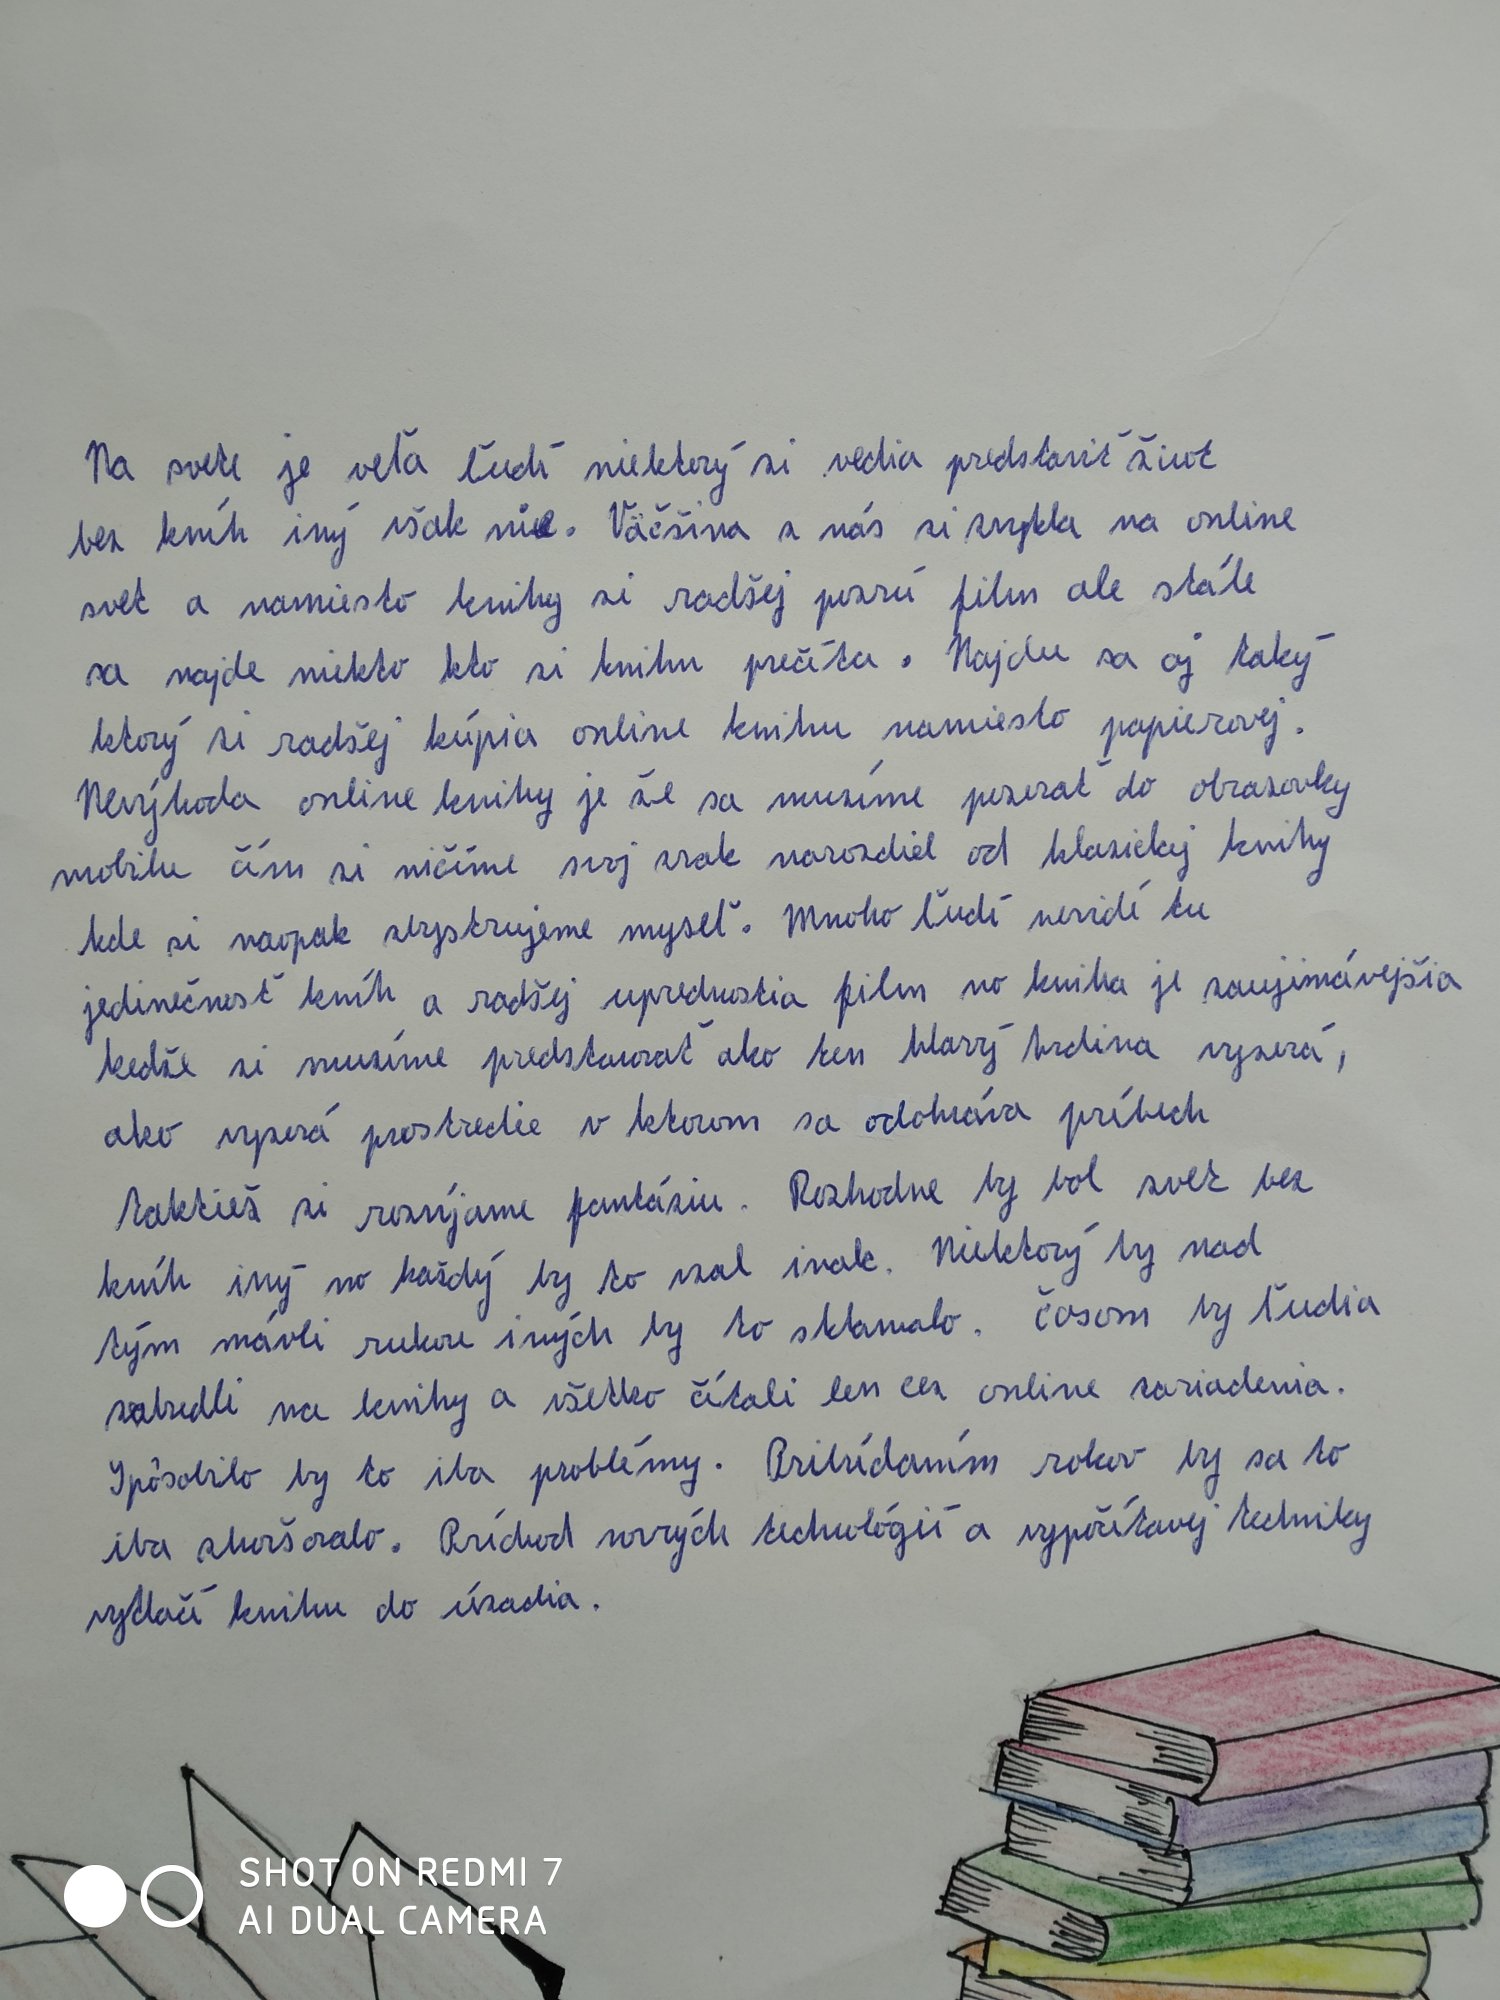 Na svete je veľa ľudí niektorý si vedia predstaviť život
bez kníh iný však nie. Väčšina z nás si zvykla na online
svet a namiesto knihy si radšej pozrú film ale stále
sa najde niekto kto si knihu prečíta. Najdu sa aj taký
ktorý si radšej kúpia online knihu namiesto papierovej.
Nevýhoda online knihy je že sa musíme pozerať do obrazovky
mobilu čím si ničíme svoj zrak narozdiel od klasickej knihy
kde si naopak zbystrujeme myseľ. Mnoho ľudí nevidí tu
jedinečnosť kníh a radšej uprednostia film no kniha je zaujimávejšia
kedže si musíme predstavovať ako ten hlavý hrdina vyzerá,
ako vyzerá prostredie v ktorom sa odohráva príbeh
taktiež si rozvíjame fantáziu. Rozhodne by bol svet bez
kníh iný no každý by to vzal inak. Niektorý by nad
tým mávli rukou iných by to sklamalo. Časom by ľudia
zabudli na knihy a všetko čítali len cez online zariadenia.
Spôsobilo by to iba problémy. Pribúdaním rokov by sa to
iba zhoršovalo. Príchod nových technológií a výpočítavej techniky
vytlačí knihu do úzadia.
SHOT ON REDMI 7
AI DUAL CAMERA